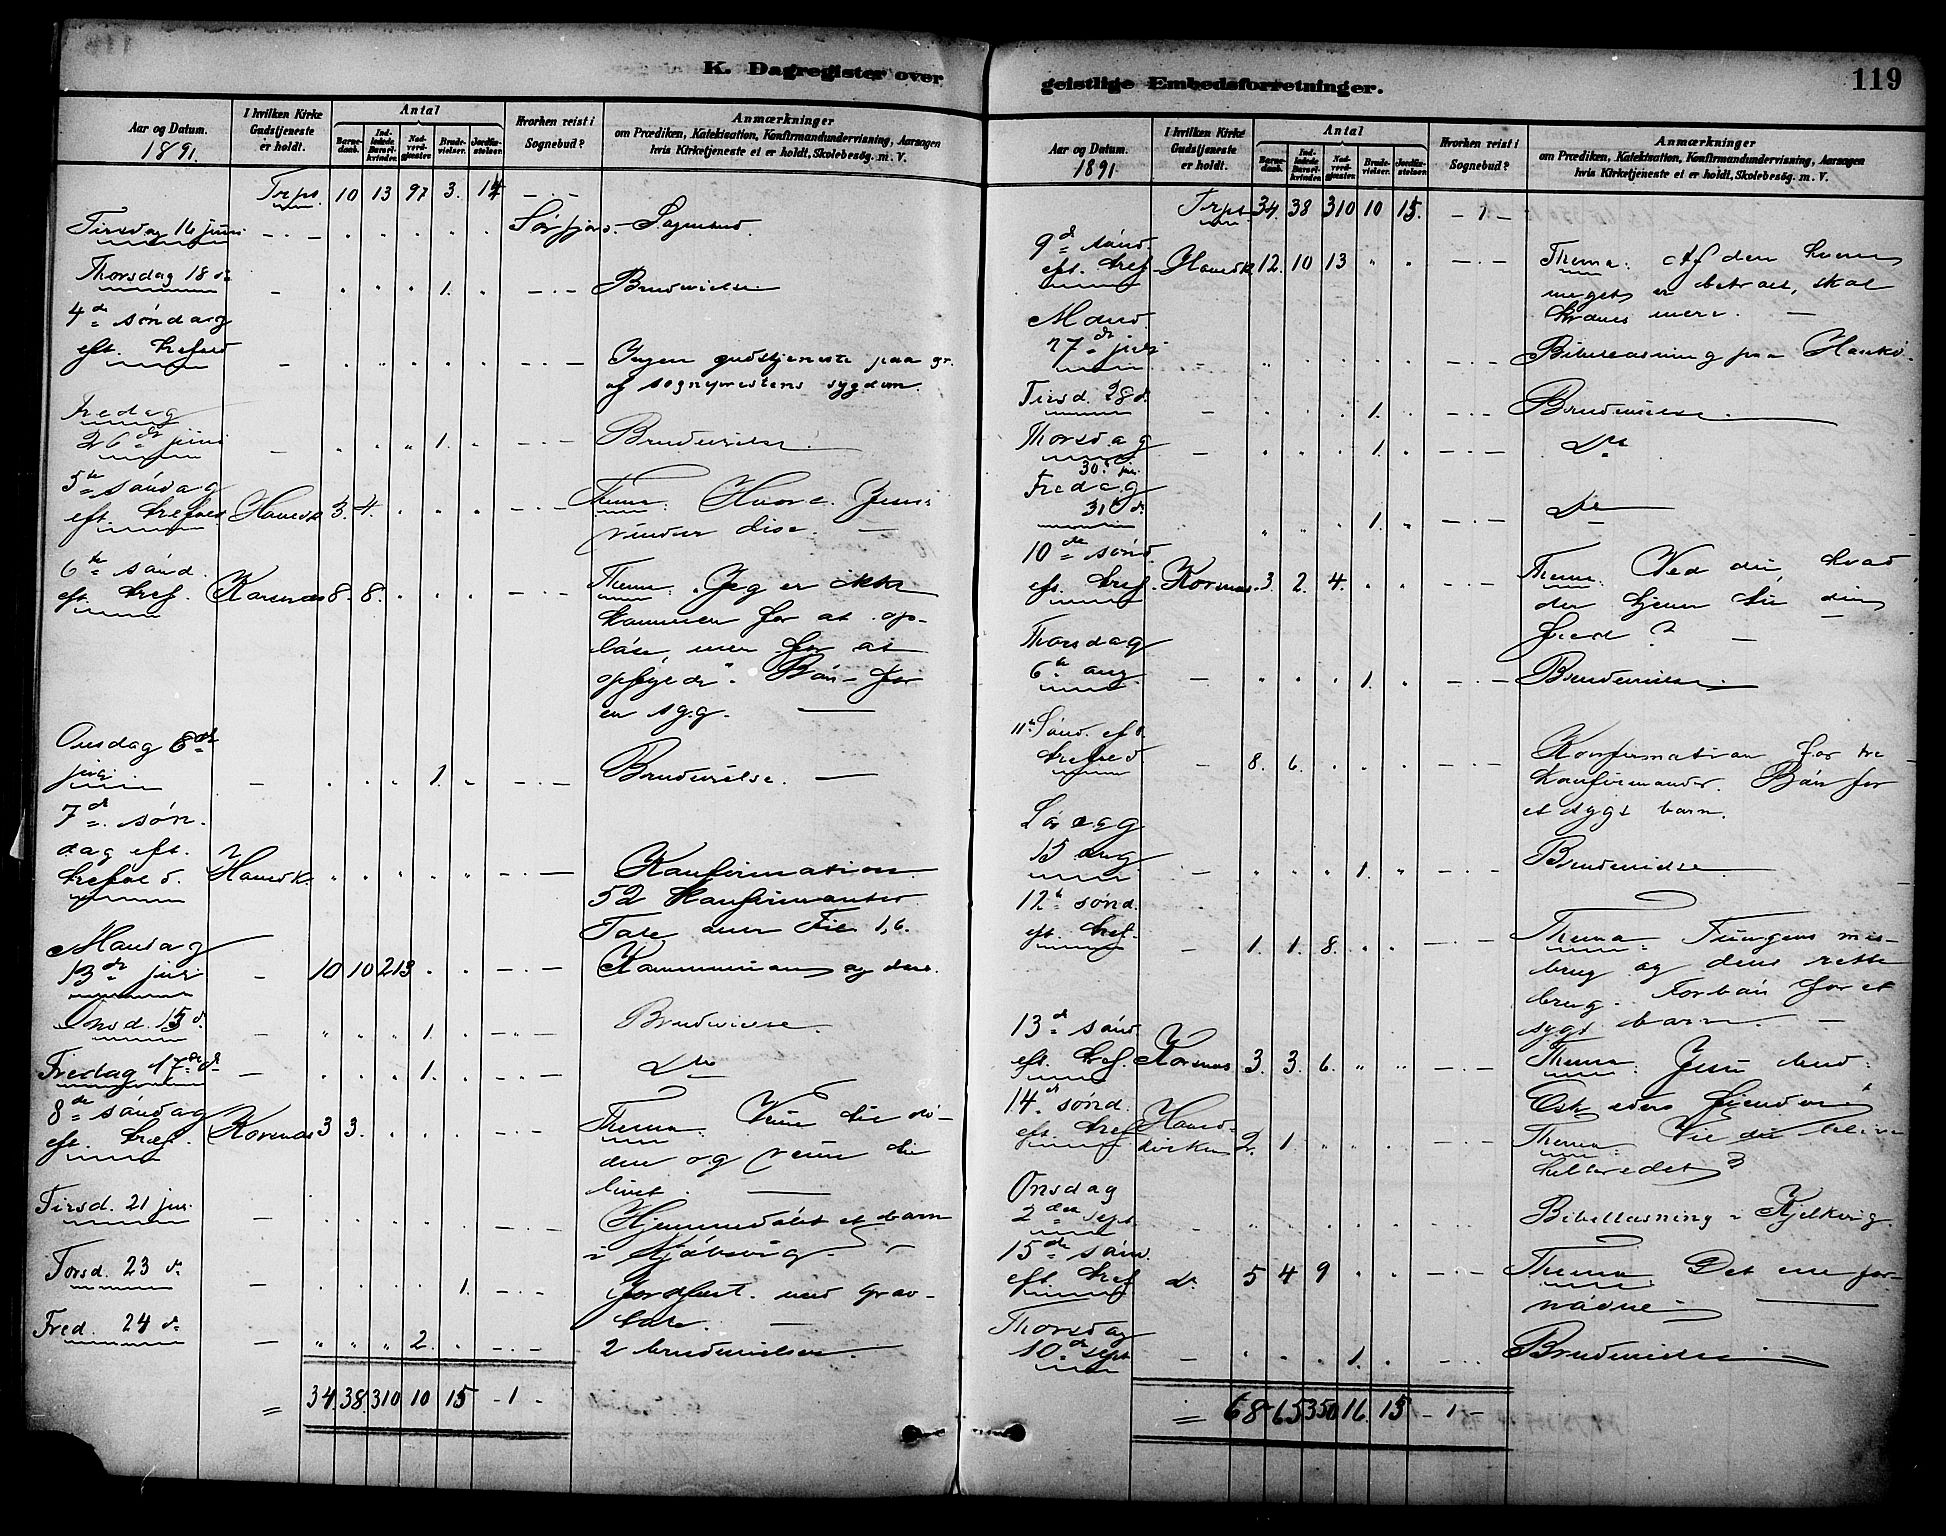 K. Dagregister over
Aar og Datum.
1891.
I hvilken Kirke Gudstjeneste er holdt.
Antal
Barnedaab.
Indledede Barselkvinder.
Nadverdgjester.
Brudevielser.
Jordfæstelser.
Hvorhen reist i Sognebud?
Anmærkninger
om Prædiken, Katekisation, Konfirmandundervisning, Aarsagen
hvis Kirketjeneste ei er holdt, Skolebesøg. m. V.
Trpt. 10 13 97 3. 14 - . -
Tirsdag 16 juni - . - Sørfjord - Sognebud.
Thorsdag 18 d. - 1. - . - Brudevielse
4de søndag
eft. trefold - - . - Ingen gudstjeneste paa gr.
af sogneprestens sygdom.
Fredag
26de juni - 1. - . - Brudevielse.
5te søndag
eft. trefold Hovedk. 3. 4. - . - Thema: Hvor Jesus
vinder
6te sønd.
eft. tref. Korsnes 8. 8. - . - Thema: "Jeg er ikke
kommen for at op-
løse, men for at
opfylde". Bøn for
en syg.
Onsdag 8de
juli - 1. - . - Brudevielse.
7de søn-
dag eft.
trefold. Hovedk. - . - Konfirmation.
52 konfirmanter.
Tale over Fil 1,6.
Mandag
13de juli - 10 10 213 - . - Kommunion og
Onsd. 15 d. - 1. - . - Brudevielse.
Fredag 17de d. - 1. - . - Do
8de søndag
eft. tref. Korsnes 3 3. - . - Thema:
den og
livet.
Tirsd. 21 jul. - - . - Hjemmedøbt et barn
i
Torsd. 23 d. - 1. - . - Jordfæst. med grav-
tale.
Fred. 24 d. - 2. - . - 2 brudevielser.
= 34 38 310 10 15 - 1 -
geistlige Embedsforretninger.
119
Aar og Datum.
1891.
I hvilken Kirke Gudstjeneste er holdt.
Antal
Barnedaab.
Indledede Barselkvinder.
Nadverdgjester.
Brudevielser.
Jordfæstelser.
Hvorhen reist i Sognebud?
Anmærkninger
om Prædiken, Katekisation, Konfirmandundervisning, Aarsagen
hvis Kirketjeneste ei er holdt, Skolebesøg. m. V.
Trpt. 34. 38 310 10 15. - 1 -
9de sønd.
eft. tref. Hovedk. 12. 10 13 - . - Thema: Af den hvem
meget er betroet, skal
kræves mere.
Mand.
27de juli - . - Bibellæsning paa
Tirsd. 28 d. - 1. - . - Brudevielse.
Thorsdag
30. jul. - 1. - . - Do
Fredag
31 d. 1. - . - Do
10de sønd.
eft. tref. Korsnes 3 2. 4. - . - Thema: Ved du, hvad
der tjener til din
fred?
Thorsdag
6te aug. - 1. - . - Brudevielse.
11te Sønd. eft.
trefold - 8. 6. - . - Konfirmation for tre
konfirmander. Bøn for
et sygt barn.
Lørdag
15 aug - 1. - . - Brudevielse.
12te sønd.
eft. tref. - 1. 1. 8. - . - Thema: Tungens mis-
brug og dens rette
brug. Forbøn for et
sygt barn.
13de sønd.
eft. tref. Korsnes 3. 3. 6. - . - Thema: Jesu bud:
Elsk eders fiender
14de sønd.
eft. tref. Hoved-
kirken 2. 1. - . - Thema: Vil du blive
helbredet?
Onsdag
2den sept. - - . - Bibellæsning i Kjelkvig.
15de sønd.
eft. tref. do 5 4 9 - . - Thema: Det ene for-
nødne.
Thorsdag
10de sept - 1. - . - Brudevielse
= 68 65 350 16. 15 - 1 -